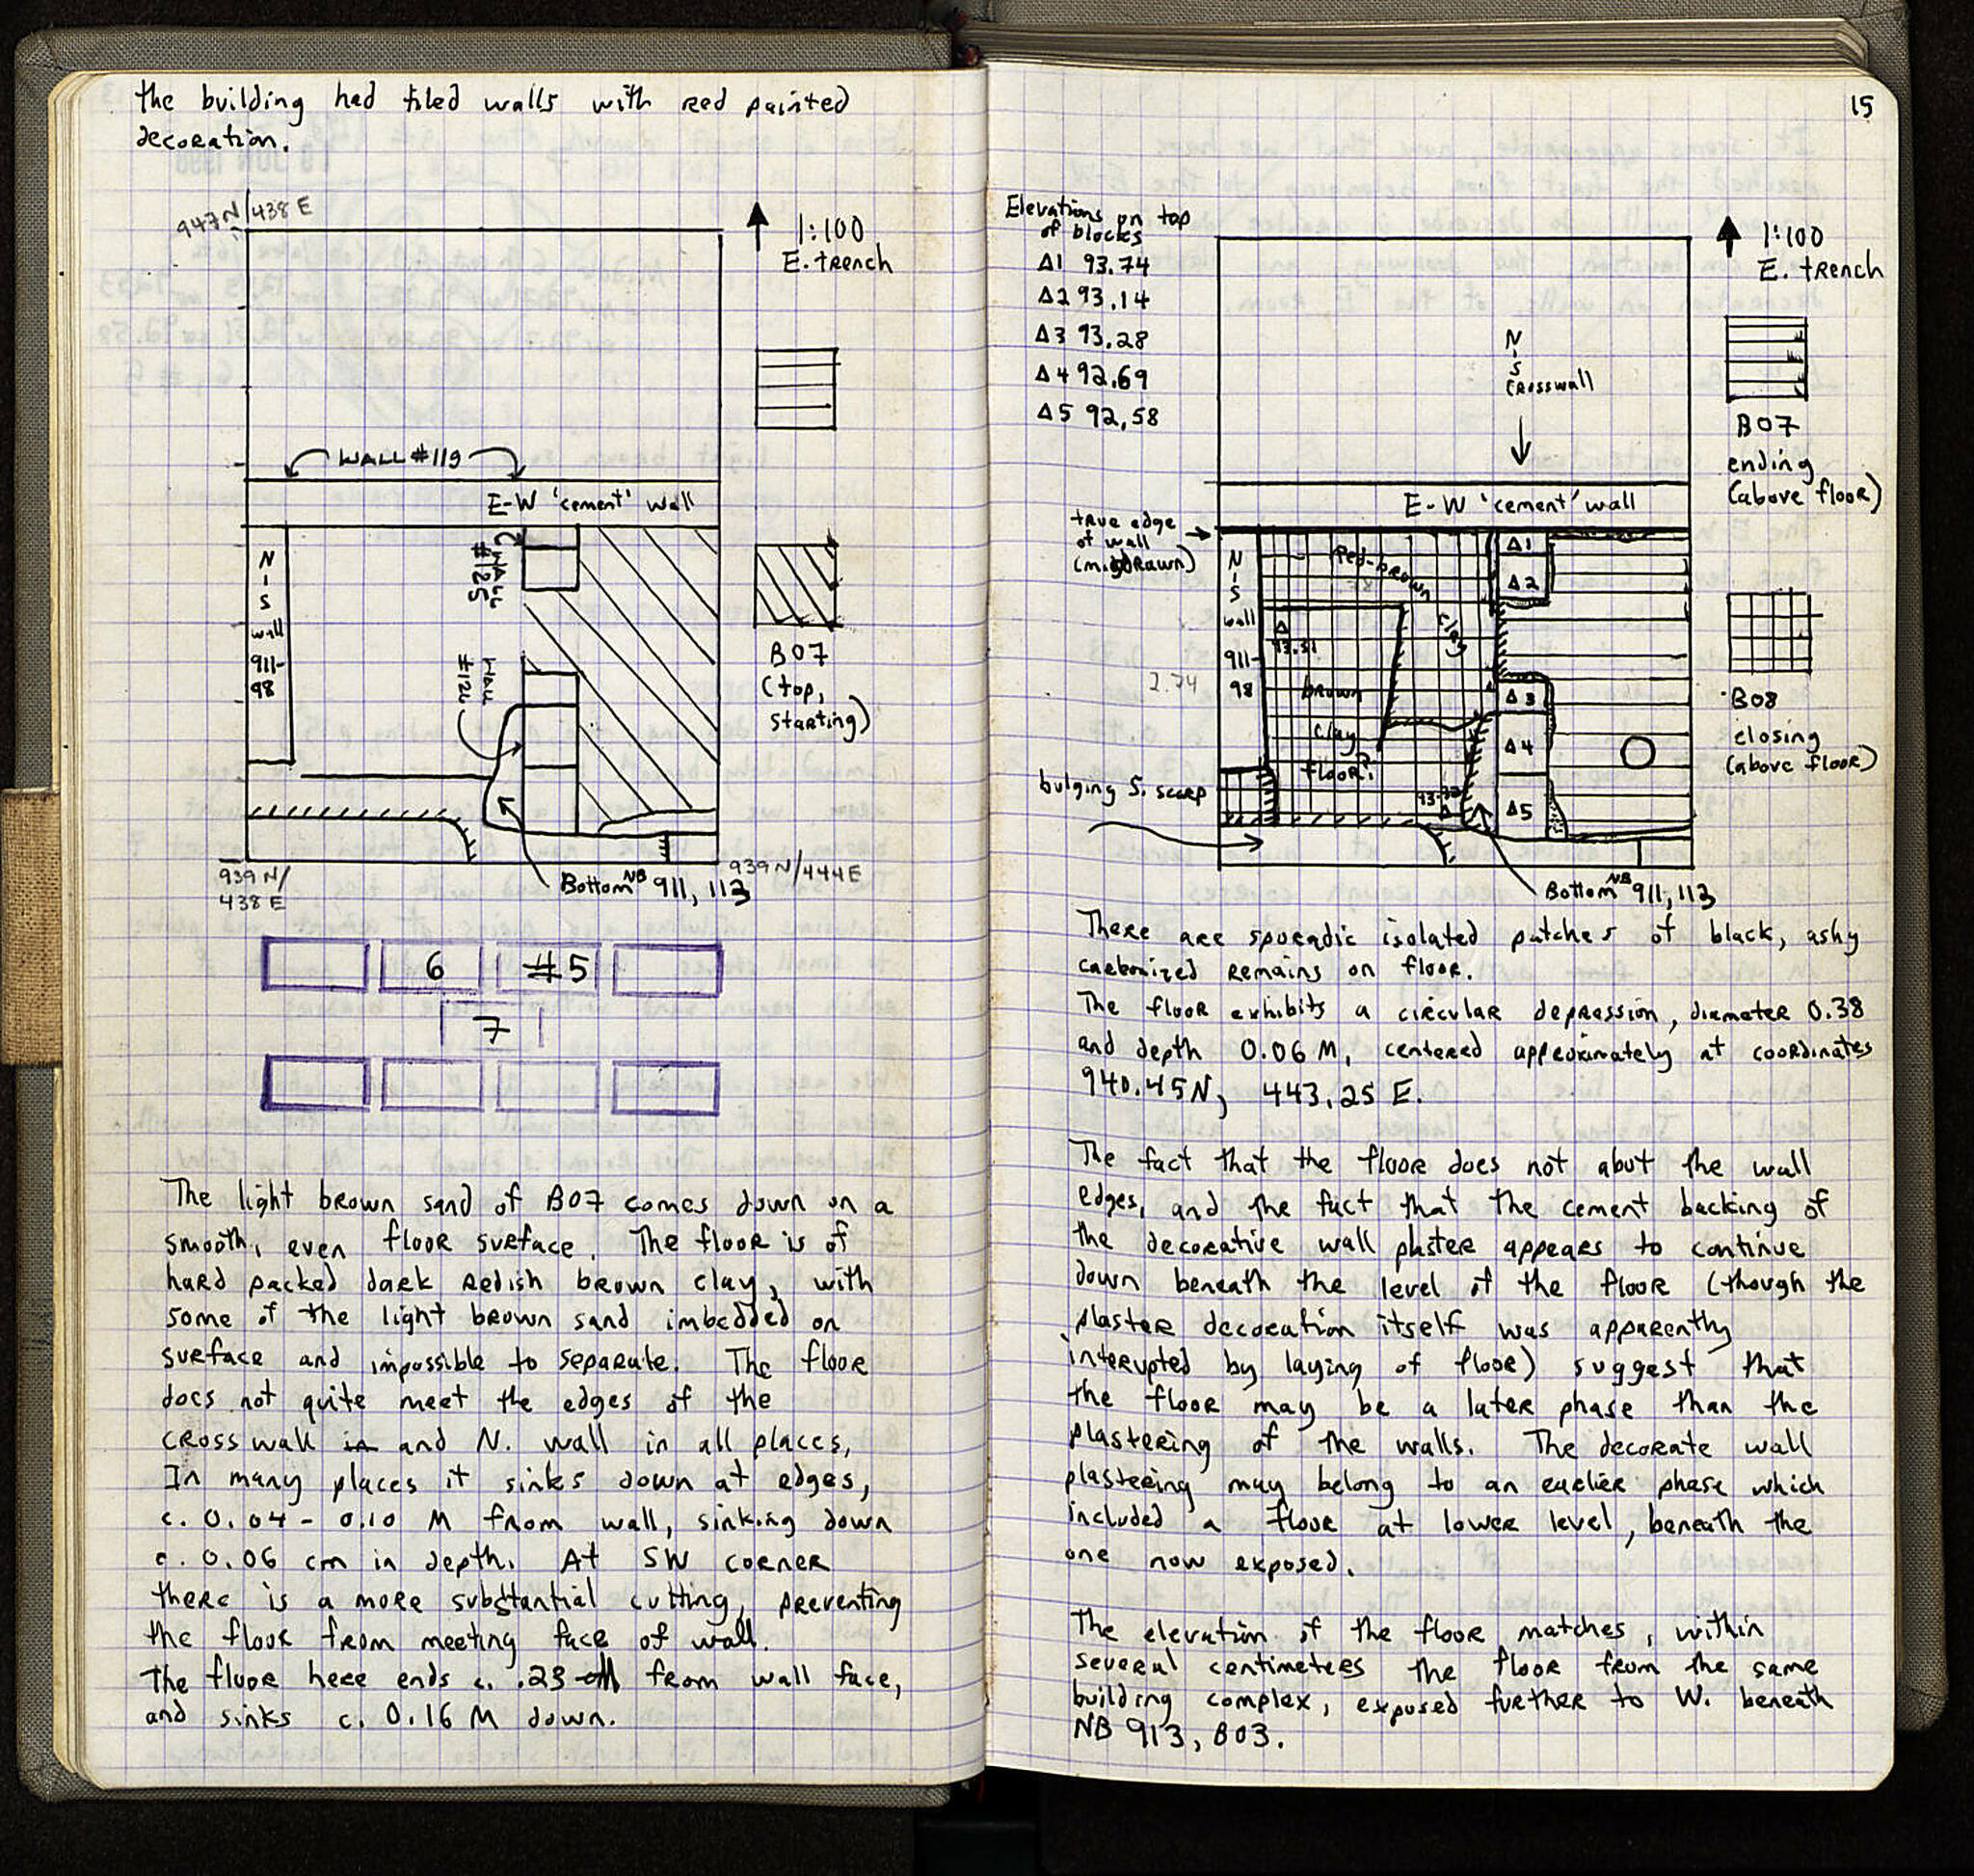 the building had tiled walls with red painted
decoration.
947N/438E
1:100
E. trench
WALL #119
E-W 'cement' wall
N
-
S
wall
911-
98
WALL
#125
WALL
#126
B07
(top,
starting)
939 N/
438 E
939N/444E
Bottom NB 911, 113
6
#5
7
The light brown sand of B07 comes down on a
smooth, even floor surface. The floor is of
hard packed dark redish brown clay, with
some of the light brown sand imbedded on
surface and impossible to separate. The floor
does not quite meet the edges of the
cross wall in and N. wall in all places,
In many places it sinks down at edges,
c. 0.04 - 0.10 M from wall, sinking down
c. 0.06 cm in depth. At SW corner
there is a more substantial cutting, preventing
the floor from meeting face of wall.
The floor here ends c. .23 M from wall face,
and sinks c. 0.16 M down.
15
Elevations on top
of blocks
Δ1 93.74
Δ2 93.14
Δ3 93.28
Δ4 92.69
Δ5 92.58
1:100
E. trench
N
-
S
crosswall
B07
ending
(above floor)
E-W 'cement' wall
true edge
of wall
(misdrawn)
N
-
S
wall
911-
98
Red-brown
clay
Δ
93.51
brown
clay
floor?
Δ1
Δ2
Δ3
Δ4
Δ5
2.74
B08
closing
(above floor)
bulging S. scarp
Bottom NB 911, 113
There are sporadic isolated patches of black, ashy
carbonized remains on floor.
The floor exhibits a circular depression, diameter 0.38
and depth 0.06 M, centered approximately at coordinates
940.45N, 443.25 E.
The fact that the floor does not abut the wall
edges, and the fact that the cement backing of
the decorative wall plaster appears to continue
down beneath the level of the floor (though the
plaster decoration itself was apparently
interupted by laying of floor) suggest that
the floor may be a later phase than the
plastering of the walls. The decorate wall
plastering may belong to an earlier phase which
included a floor at lower level, beneath the
one now exposed.
The elevation of the floor matches, within
several centimeters the floor from the same
building complex, exposed further to W. beneath
NB 913, B03.